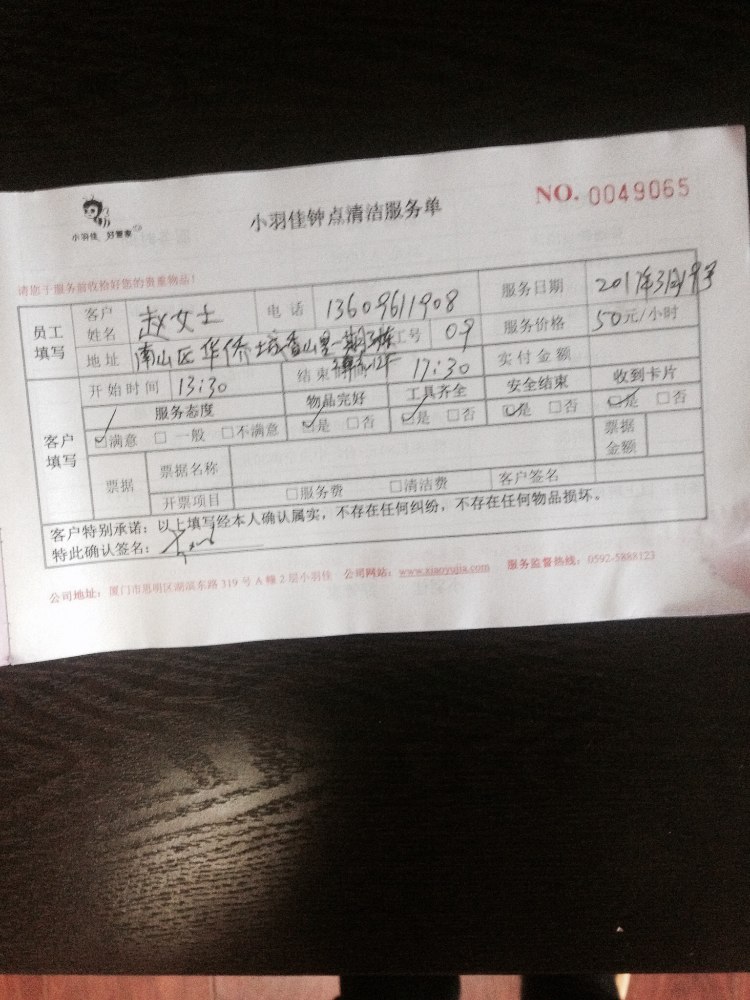 小羽佳 好管家
小羽佳钟点清洁服务单
NO. 0049065
请您于服务前收拾好您的贵重物品!
员工填写 客户姓名 赵女士 电话 13609611908 服务日期 2017年3月19号
地址 南山区华侨城香山里 工号 09 服务价格 50元/小时
客户填写 开始时间 13:30 结束时间 17:30 实付金额
服务态度 物品完好 工具齐全 安全结束 收到卡片
☑满意 □一般 □不满意 ☑是 □否 ☑是 □否 ☑是 □否 ☑是 □否
票据 票据名称 票据金额
开票项目 □服务费 □清洁费 客户签名
客户特别承诺:以上填写经本人确认属实,不存在任何纠纷,不存在任何物品损坏。
特此确认签名:
公司地址:厦门市思明区湖滨东路319号A幢2层小羽佳 公司网站:www.xiaoyujia.com 服务监督热线:0592-5888123